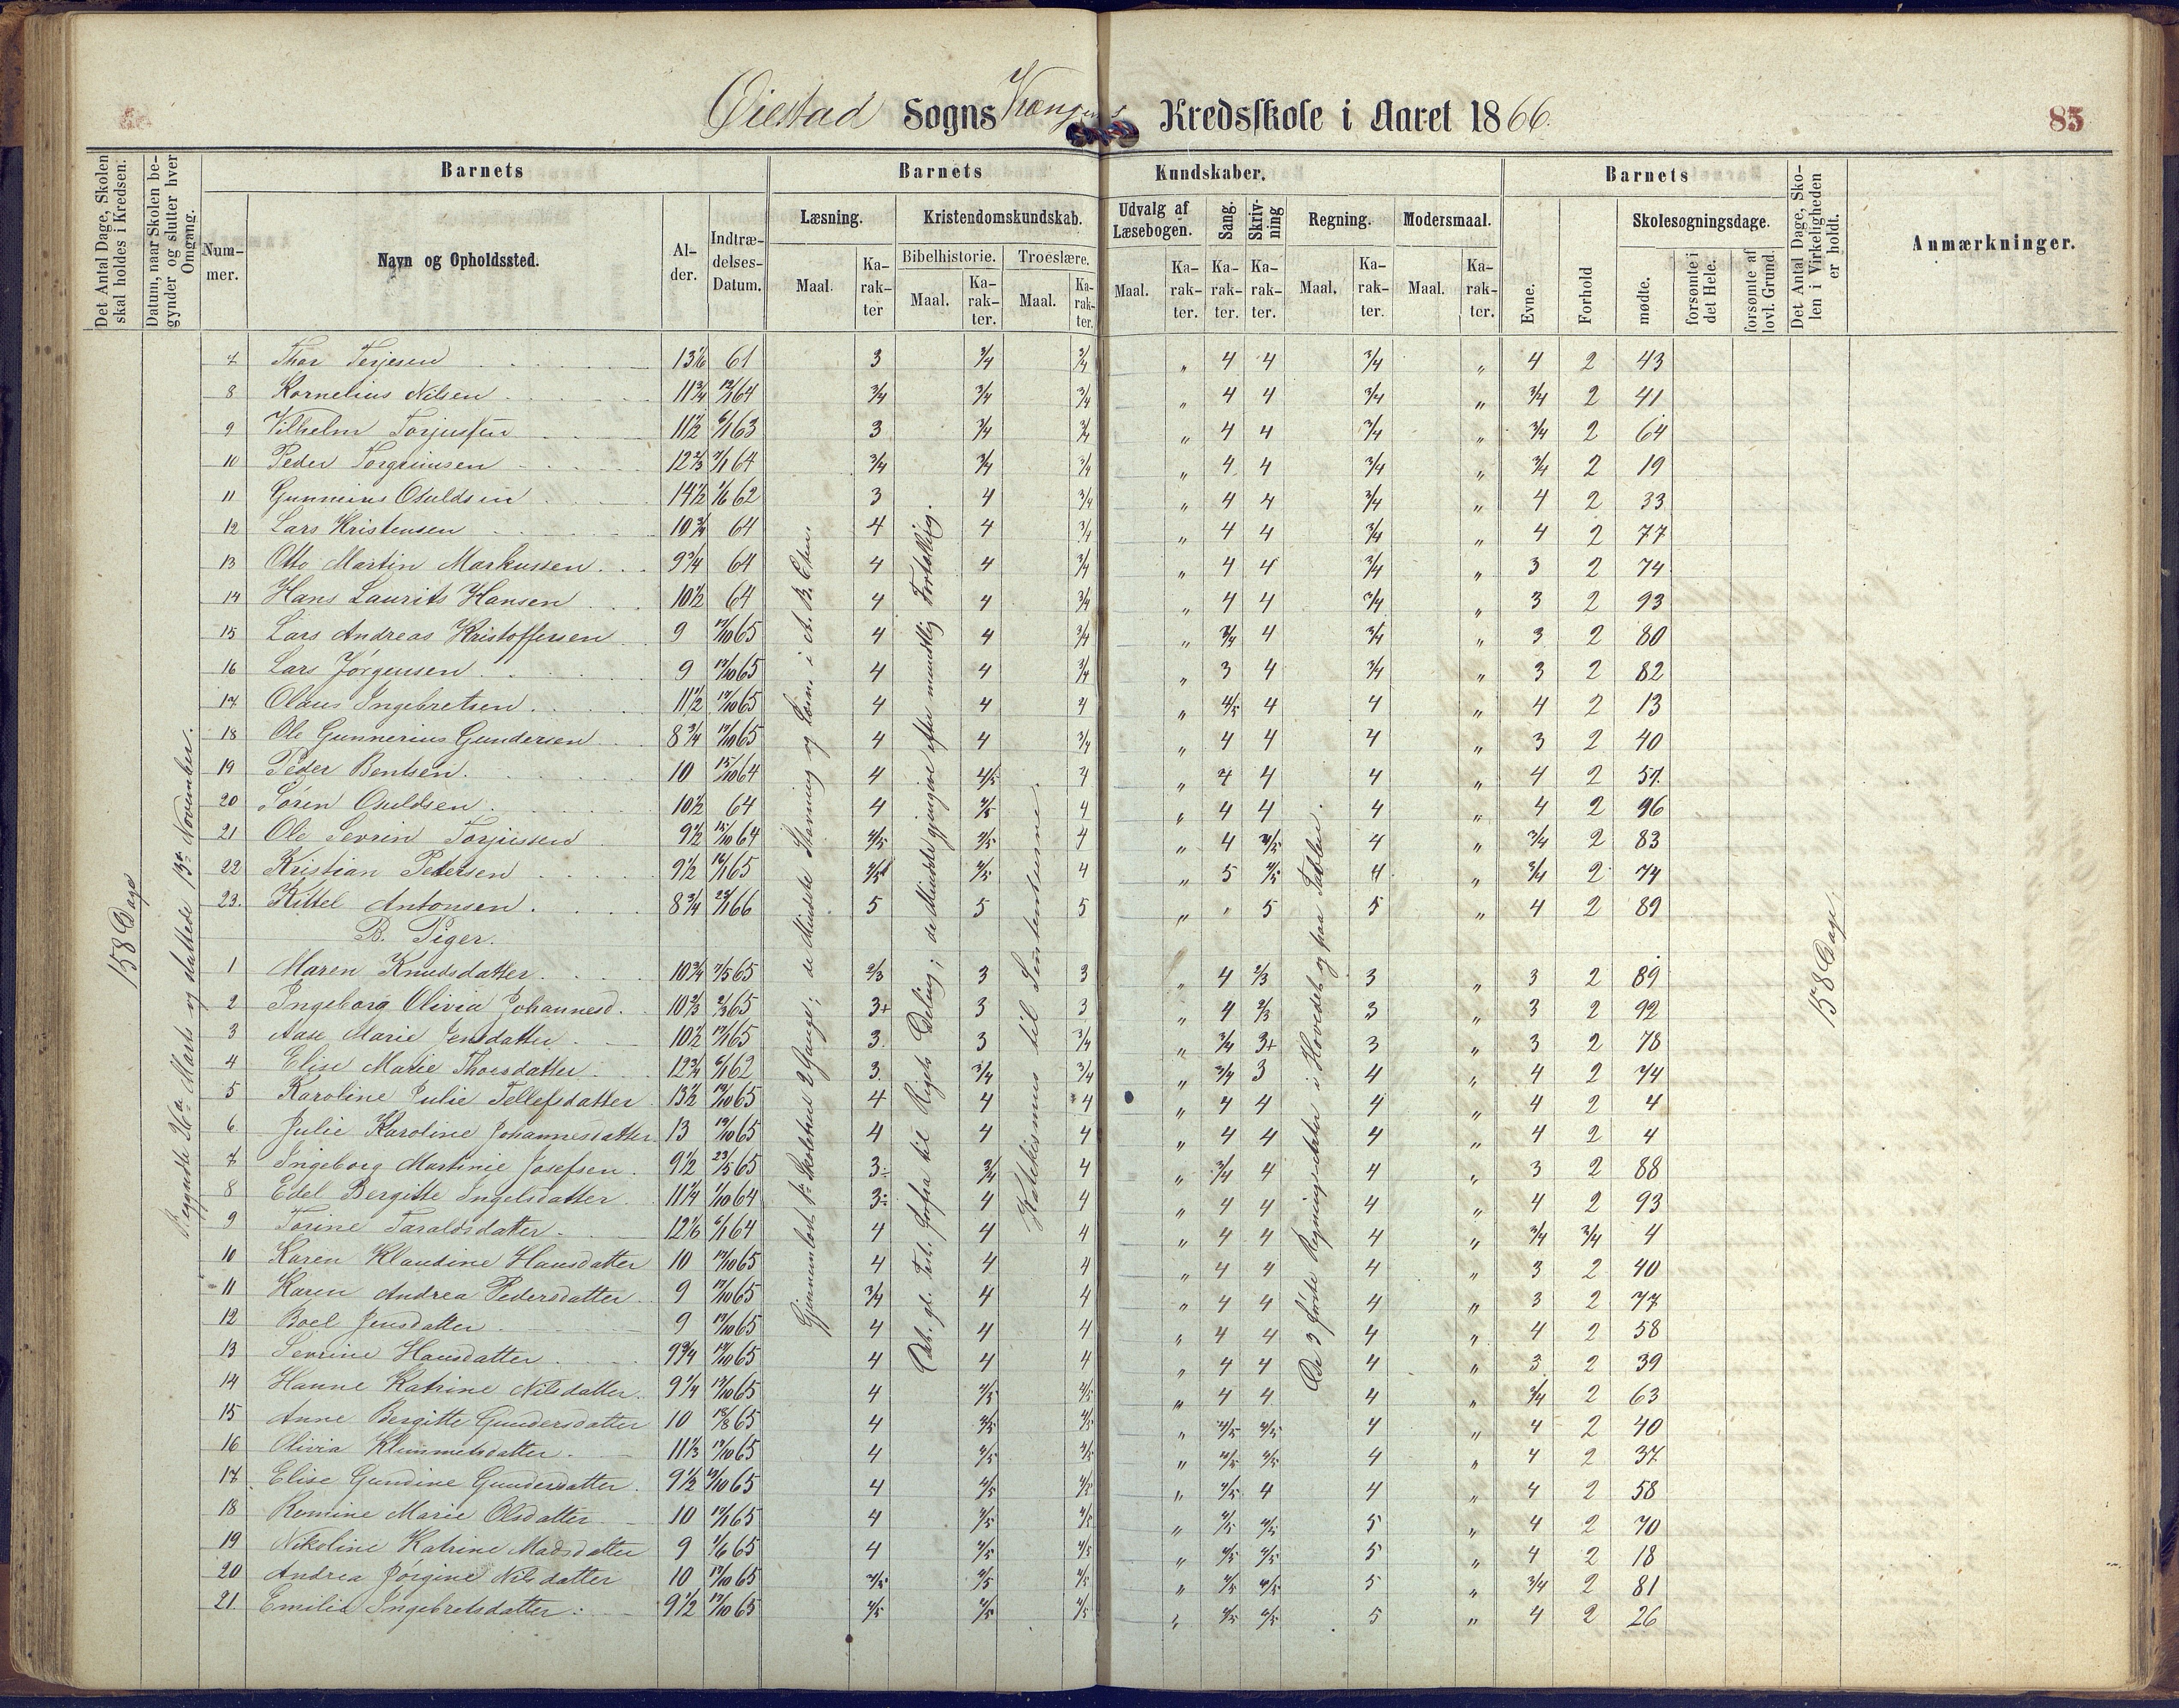 Øiestad Sogns Kredsskole i Aaret 1866.
85
Det Antal Dage, Skolen skal holdes i Kredsen.
Datum, naar Skolen begynder og slutter hver Omgang.
Barnets
Barnets Kundskaber.
Barnets
Det Antal Dage, Skolen i Virkeligheden er holdt.
Anmærkninger.
Nummer.
Navn og Opholdssted.
Alder.
Indtrædelses-Datum.
Læsning.
Kristendomskundskab.
Udvalg af Læsebogen.
Sang.
Skrivning
Regning.
Modersmaal.
Evne.
Forhold
Skolesøgningsdage.
Bibelhistorie.
Troeslære.
Maal.
Karakter
Maal.
Karakter.
Maal.
Karakter.
Maal.
Karakter.
Karakter.
Karakter.
Maal.
Karakter.
Maal.
Karakter.
mødte.
forsømte i det Hele.
forsømte af lovl. Grund.
158 Dage
Begyndte 26de Marts og sluttede 13de November.
Gjennemløst 1ste Skoletrin 2 Gange; de Mindste Stavning og Læsn. i A. B. C'en.
Odt. gl. Test. forfra til Rigets Deling; de Mindste gjengive efter mundtlig Fortælling.
Katekismus til Sententserne.
De 3 første Regningsarter i Hovedet og paa Tavlen.
158 Dage
7 Thor Terjesen 13 1/6 61 3 3/4 3/4 " 4 4 3/4 " 4 2 43
8 Kornelius Nilsen 11 3/4 12/1 64 3/4 3/4 3/4 " 4 4 3/4 " 3/4 2 41
9 Vilhelm Torjussen 11 1/2 6/1 63 3 3/4 3/4 " 4 4 3/4 " 3/4 2 64
10 Peder Torgrimsen 12 2/3 7/1 64 3/4 3/4 3/4 " 4 4 3/4 " 3/4 2 19
11 Gunnerius Osuldsen 14 1/2 1/6 62 3 4 3/4 " 4 4 3/4 " 4 2 33
12 Lars Kristensen 10 3/4 64 4 4 3/4 " 4 4 3/4 " 4 2 77
13 Otto Martin Markussen 9 3/4 64 4 4 3/4 " 4 4 3/4 " 3 2 74
14 Hans Laurits Hansen 10 1/2 64 4 4 3/4 " 4 4 3/4 " 3 2 93
15 Lars Andreas Kristoffersen 9 17/10 65 4 4 3/4 " 3/4 4 3/4 " 3 2 80
16 Lars Jørgensen 9 17/10 65 4 4 3/4 " 3 4 3/4 " 3 2 82
17 Olaus Ingebretsen 11 1/2 17/10 65 4 4 4 " 4/5 4 4 " 4 2 13
18 Ole Gunnerius Gundersen 8 3/4 17/10 65 4 4 3/4 " 4 4 4 " 3 2 40
19 Peder Bentsen 10 15/10 64 4 4/5 4 " 4 4 4 " 4 2 57
20 Søren Osuldsen 10 1/2 64 4 4/5 4 " 4 4 4 " 4 2 96
21 Ole Sevrin Torjussen 9 1/2 15/10 64 4/5 4/5 4 " 4 4/5 4 " 3/4 2 83
22 Kristian Petersen 9 1/2 16/1 65 4/5 4/5 4 " 5 4/5 4 " 3/4 2 74
23. Kittel Antonsen 8 3/4 23/1 66 5 5 5 " " 5 5 " 4 2 89
B. Piger.
1 Maren Knudsdatter 10 3/4 7/5 65 2/3 3 3 " 4 2/3 3 " 3 2 89
2 Ingeborg Olivia Johannesd. 10 2/3 2/3 65 3+ 3 3 " 4 2/3 3 " 3 2 92
3 Aase Marie Jensdatter 10 1/2 17/1 65 3 3 3/4 " 3/4 3+ 3 " 3 2 78
4 Elise Marie Thorsdatter 12 3/4 6/1 62 3 3/4 3/4 " 3/4 3 4 " 4 2 74
5 Karoline Julie Tellefsdatter 13 1/2 19/10 65 4 4 4 " 4 4 4 " 4 2 4
6 Julie Karoline Johannesdatter 13 19/10 65 4 4 4 " 4 4 4 " 4 2 4
7 Ingeborg Martinie Josefsen 9 1/2 23/5 65 3÷ 3/4 4 " 3/4 4 4 " 3 2 88
8 Edel Bergitte Ingelsdatter 11 1/4 1/10 64 3÷ 4 4 " 4 4 4 " 4 2 93
9 Torine Taraldsdatter 12 1/6 6/1 64 4 4 4 " 4 4 4 " 3/4 3/4 4
10 Karen Klaudine Hansdatter 10 17/10 65 4 4 4 " 4 4 4 " 3 2 40
11 Karen Andrea Pedersdatter 9 17/10 65 3/4 4 4 " 4 4 4 " 3 2 77
12 Boel Jensdatter 9 17/10 65 4 4 4 " 4 4 4 " 4 2 58
13 Sevrine Hansdatter 9 3/4 17/10 65 4 4 4 " 4 4 4 " 3 2 39
14 Hanne Katrine Nilsdatter 9 1/4 17/10 65 4 4/5 4/5 " 4 4 4 " 3/4 2 63
15 Anne Bergitte Gundersdatter 10 18/8 65 4 4/5 4/5 " 4/5 4/5 4 " 4 2 40
16 Olivia Klemmetsdatter 11 1/3 17/10 65 4 4/5 4/5 " 4/5 4/5 4 " 4 2 37
17 Elise Gundine Gundersdatter 9 1/2 17/10 65 4 4/5 4/5 " 4/5 4 4 " 4 2 58
18 Romine Marie Olsdatter 10 17/1 65 4 4/5 4/5 " 4/5 4/5 5 " 4 2 70
19 Nikoline Katrine Madsdatter 9 1/6 65 4 4/5 4/5 " 4/5 4/5 5 " 4 2 18
20 Andrea Jørgine Nilsdatter 10 17/10 65 4/5 4/5 4/5 " 4/5 4/5 5 " 3/4 2 81
21. Emilie Ingebretsdatter 9 1/2 17/10 65 4/5 4/5 4/5 " 4/5 4/5 5 " 4 2 26